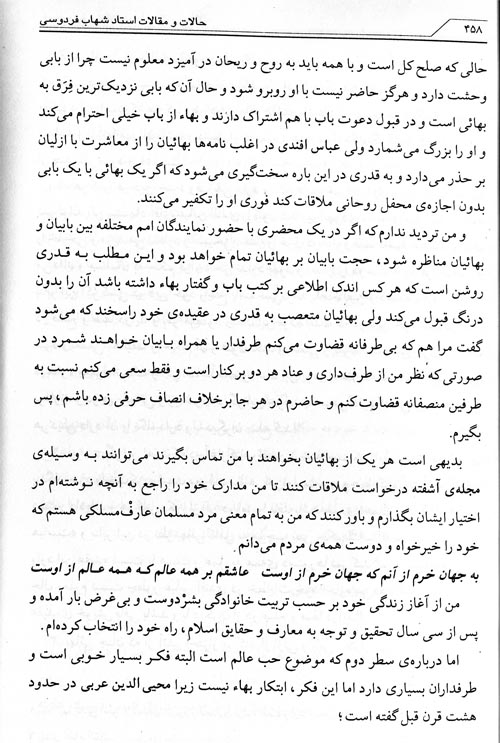 ۴۵۸
حالات و مقالات استاد شهاب فردوسی
حالی که صلح کل است و با همه باید به روح و ریحان در آمیزد معلوم نیست چرا از بابی
وحشت دارد و هرگز حاضر نیست با او روبرو شود و حال آن که بابی نزدیک‌ترین فِرَق به
بهائی است و در قبول دعوت باب با هم اشتراک دارند و بهاء از باب خیلی احترام می‌کند
و او را بزرگ می‌شمارد ولی عباس افندی در اغلب نامه‌ها بهائیان را از معاشرت با ازلیان
بر حذر می‌دارد و به قدری در این باره سخت‌گیری می‌شود که اگر یک بهائی با یک بابی
بدون اجازه‌ی محفل روحانی ملاقات کند فوری او را تکفیر می‌کنند.
و من تردید ندارم که اگر در یک محضری با حضور نمایندگان امم مختلفه بین بابیان و
بهائیان مناظره شود، حجت بابیان بر بهائیان تمام خواهد بود و این مطلب به قدری
روشن است که هر کس اندک اطلاعی بر کتب باب و گفتار بهاء داشته باشد آن را بدون
درنگ قبول می‌کند ولی بهائیان متعصب به قدری در عقیده‌ی خود راسخند که می‌شود
گفت مرا هم که بی‌طرفانه قضاوت می‌کنم طرفدار یا همراه بابیان خواهند شمرد در
صورتی که نظر من از طرف‌داری و عناد هر دو بر کنار است و فقط سعی می‌کنم نسبت به
طرفین منصفانه قضاوت کنم و حاضرم در هر جا برخلاف انصاف حرفی زده باشم، پس
بگیرم.
بدیهی است هر یک از بهائیان بخواهند با من تماس بگیرند می‌توانند به وسیله‌ی
مجله‌ی آشفته درخواست ملاقات کنند تا من مدارک خود را راجع به آنچه نوشته‌ام در
اختیار ایشان بگذارم و باور کنند که من به تمام معنی مرد مسلمان عارفْ مسلکی هستم که
خود را خیرخواه و دوست همه‌ی مردم می‌دانم.
به جهان خرم از آنم که جهان خرم از اوست عاشقم بر همه عالم که همه عالم از اوست
من از آغاز زندگی خود بر حسب تربیت خانوادگی بشرْدوست و بی‌غرض بار آمده و
پس از سی سال تحقیق و توجه به معارف و حقایق اسلام، راه خود را انتخاب کرده‌ام.
اما درباره‌ی سطر دوم که موضوع حب عالم است البته فکر بسیار خوبی است و
طرفداران بسیاری دارد اما این فکر، ابتکار بهاء نیست زیرا محیی الدین عربی در حدود
هشت قرن قبل گفته است؛